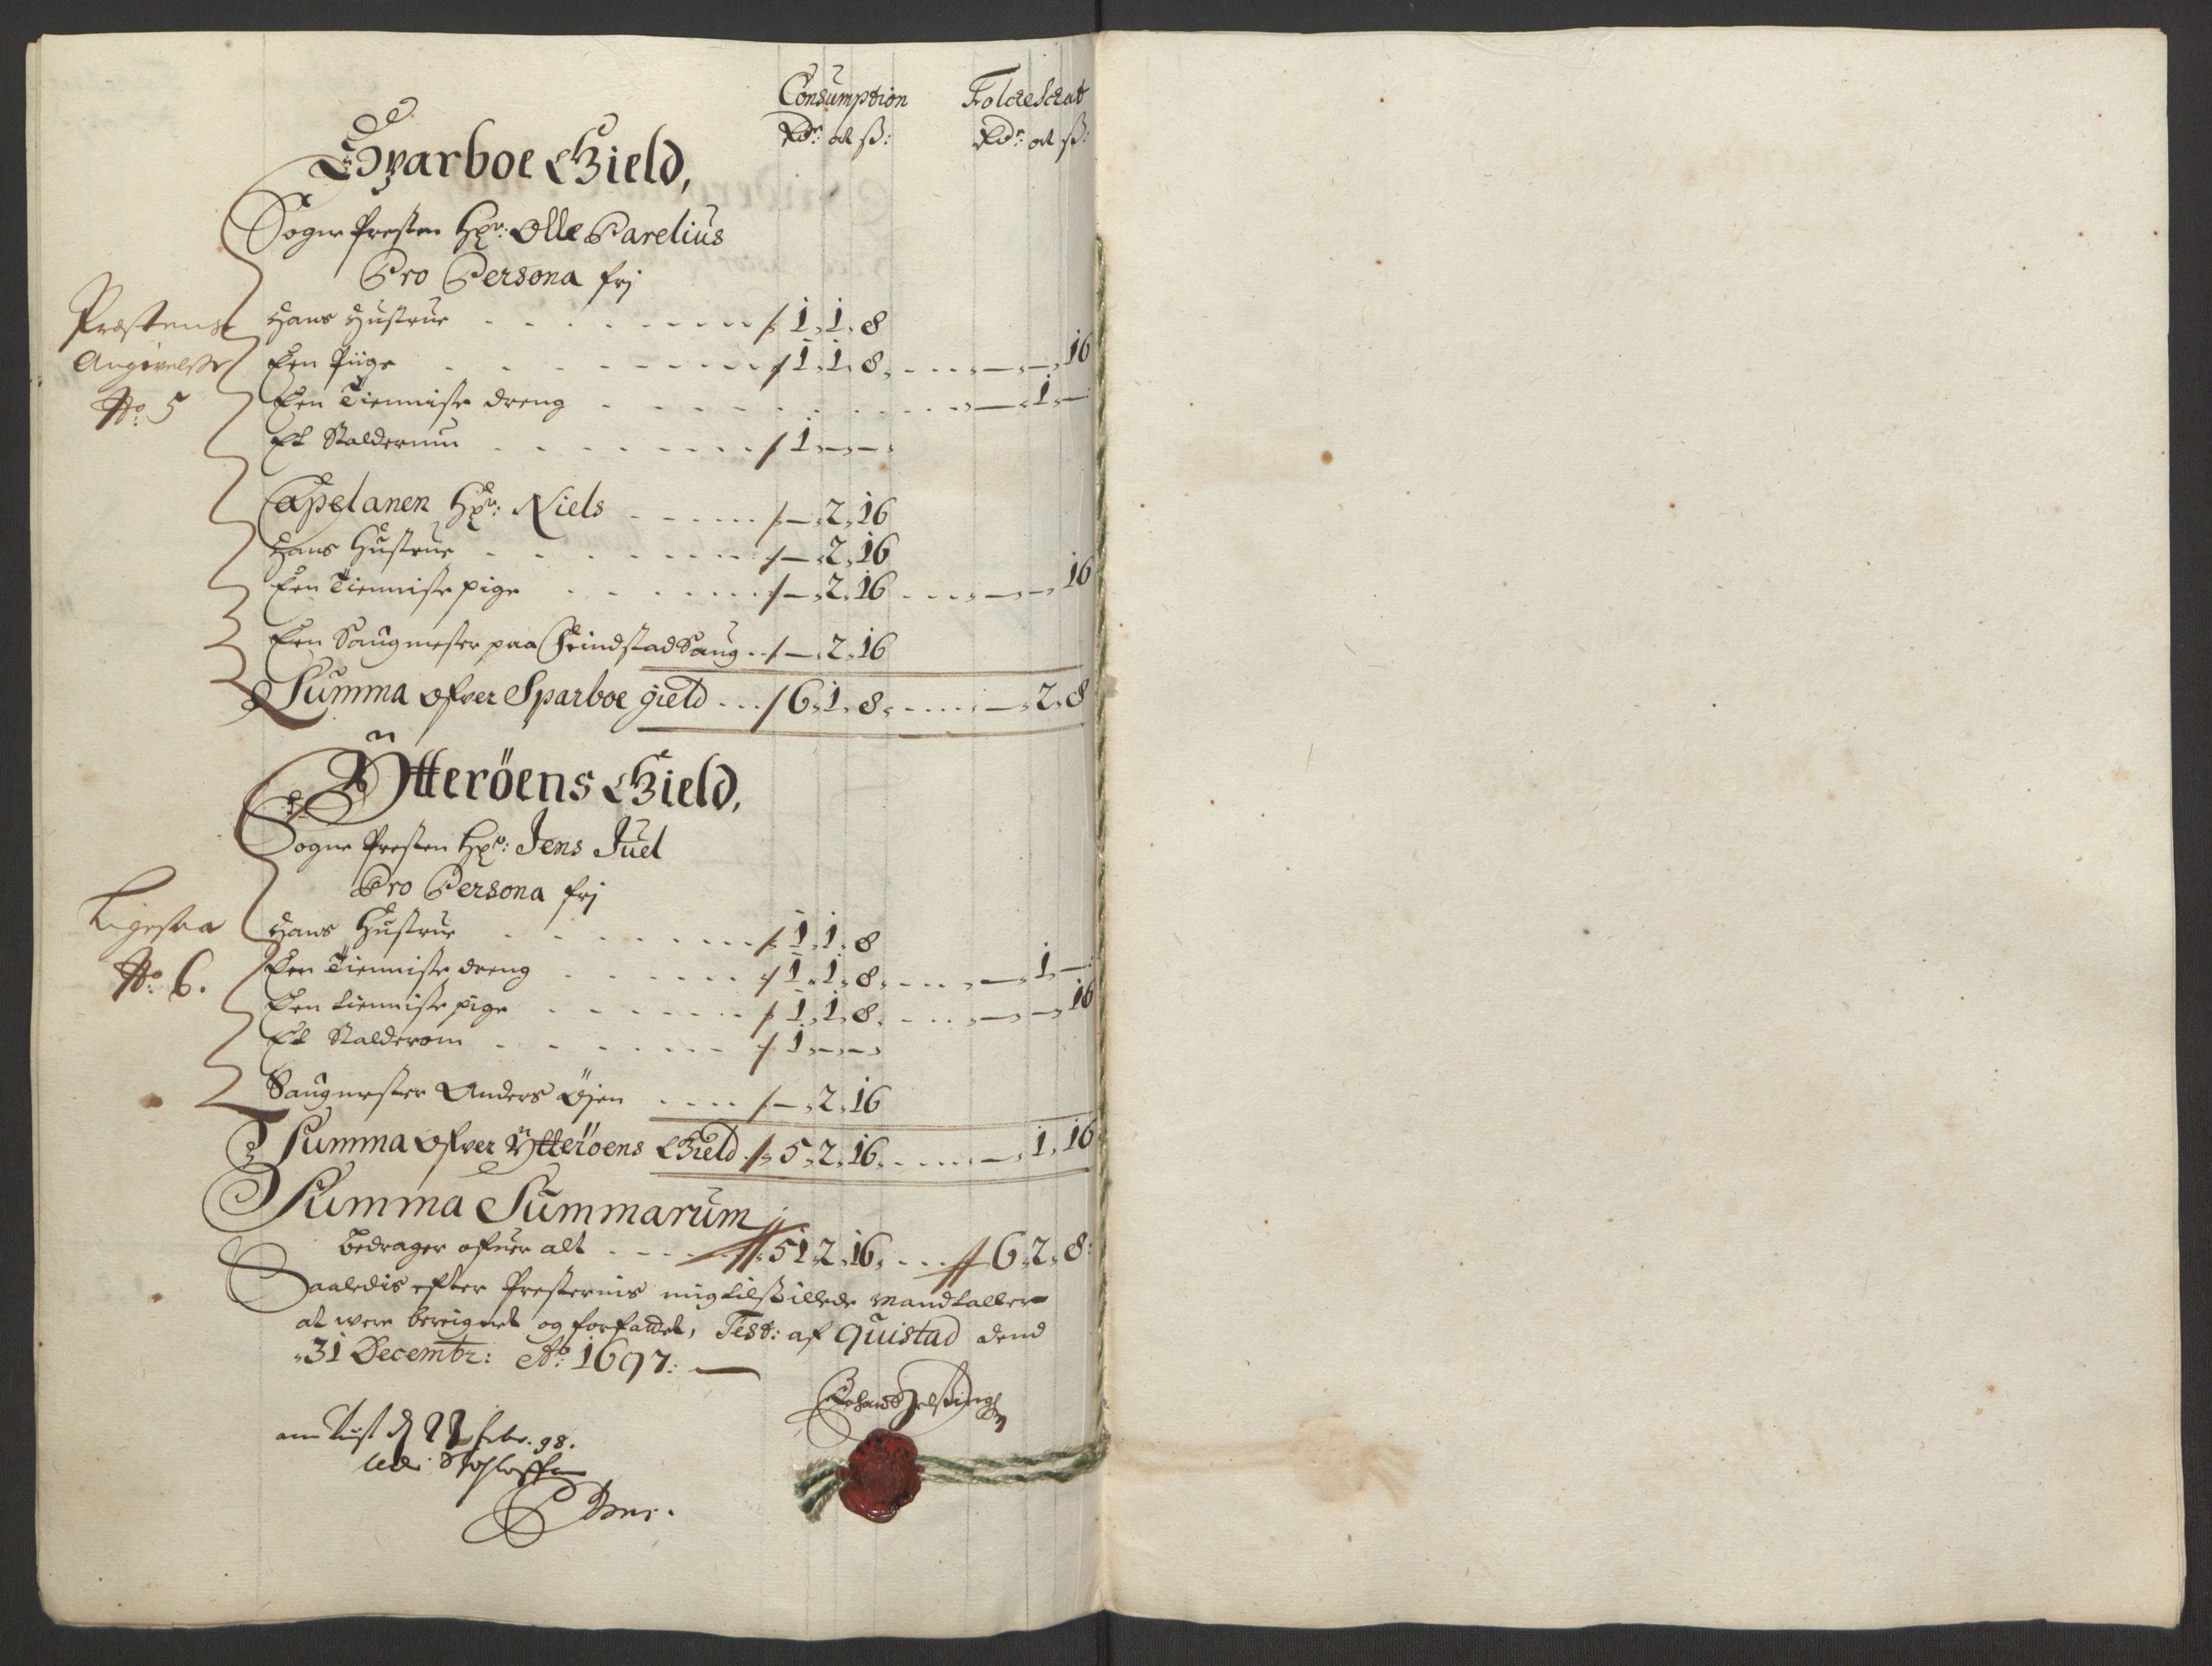 Consumption Folcheschat
Rdr: ort ß: Rdr: ort ß:
Sparboe Gield,
Sogne Presten Hr: Olle Parelius
Pro Persona frj
Præstens
Angivelße
No: 5
Hans Hustrue - - - 1. 1. 8
Een Piige - - - 1. 1. 8. - - - - . - . 16
Een Tienniste dreng - - - - . 1. -
Et Stalderum - - - 1. - . - .
Capelanen Hr: Niels - - - - . 2. 16
Hans Hustrue - - - - . 2. 16
Een Tienniste pige - - - - . 2. 16 - - - - . - . 16
Een Saugmester paa Saug - . 2. 16
Summa ofver Sparboe gield - - - 6. 1. 8. - - - - . 2. 8
Ytteröens Gield,
Sogne Presten Hr: Jens Juel
Pro Persona frj
Ligesaa
No: 6.
Hans Hustrue - - - 1. 1. 8
Een Tienniste dreng - - - 1. 1. 8. - - - - . 1. -
Een tienniste pige - - - 1. 1. 8. - - - - . - . 16
Et Stalderom - - - 1. - . - .
Saugmester Anders Öjen - - - - . 2. 16
Summa ofver Ytteröens Gield 5. 2. 16. - - - - . 1. 16
Summa Summarum
bedrager ofuer alt - - - 51. 2. 16. - - - 6. 2. 8:
Saaledis efter Presternis mig tilstillede Mandtaller
at were bereignet og forfattet, Test: af Quistad dend
31 Decembr: Ao: 1697:
22 febr. 98.